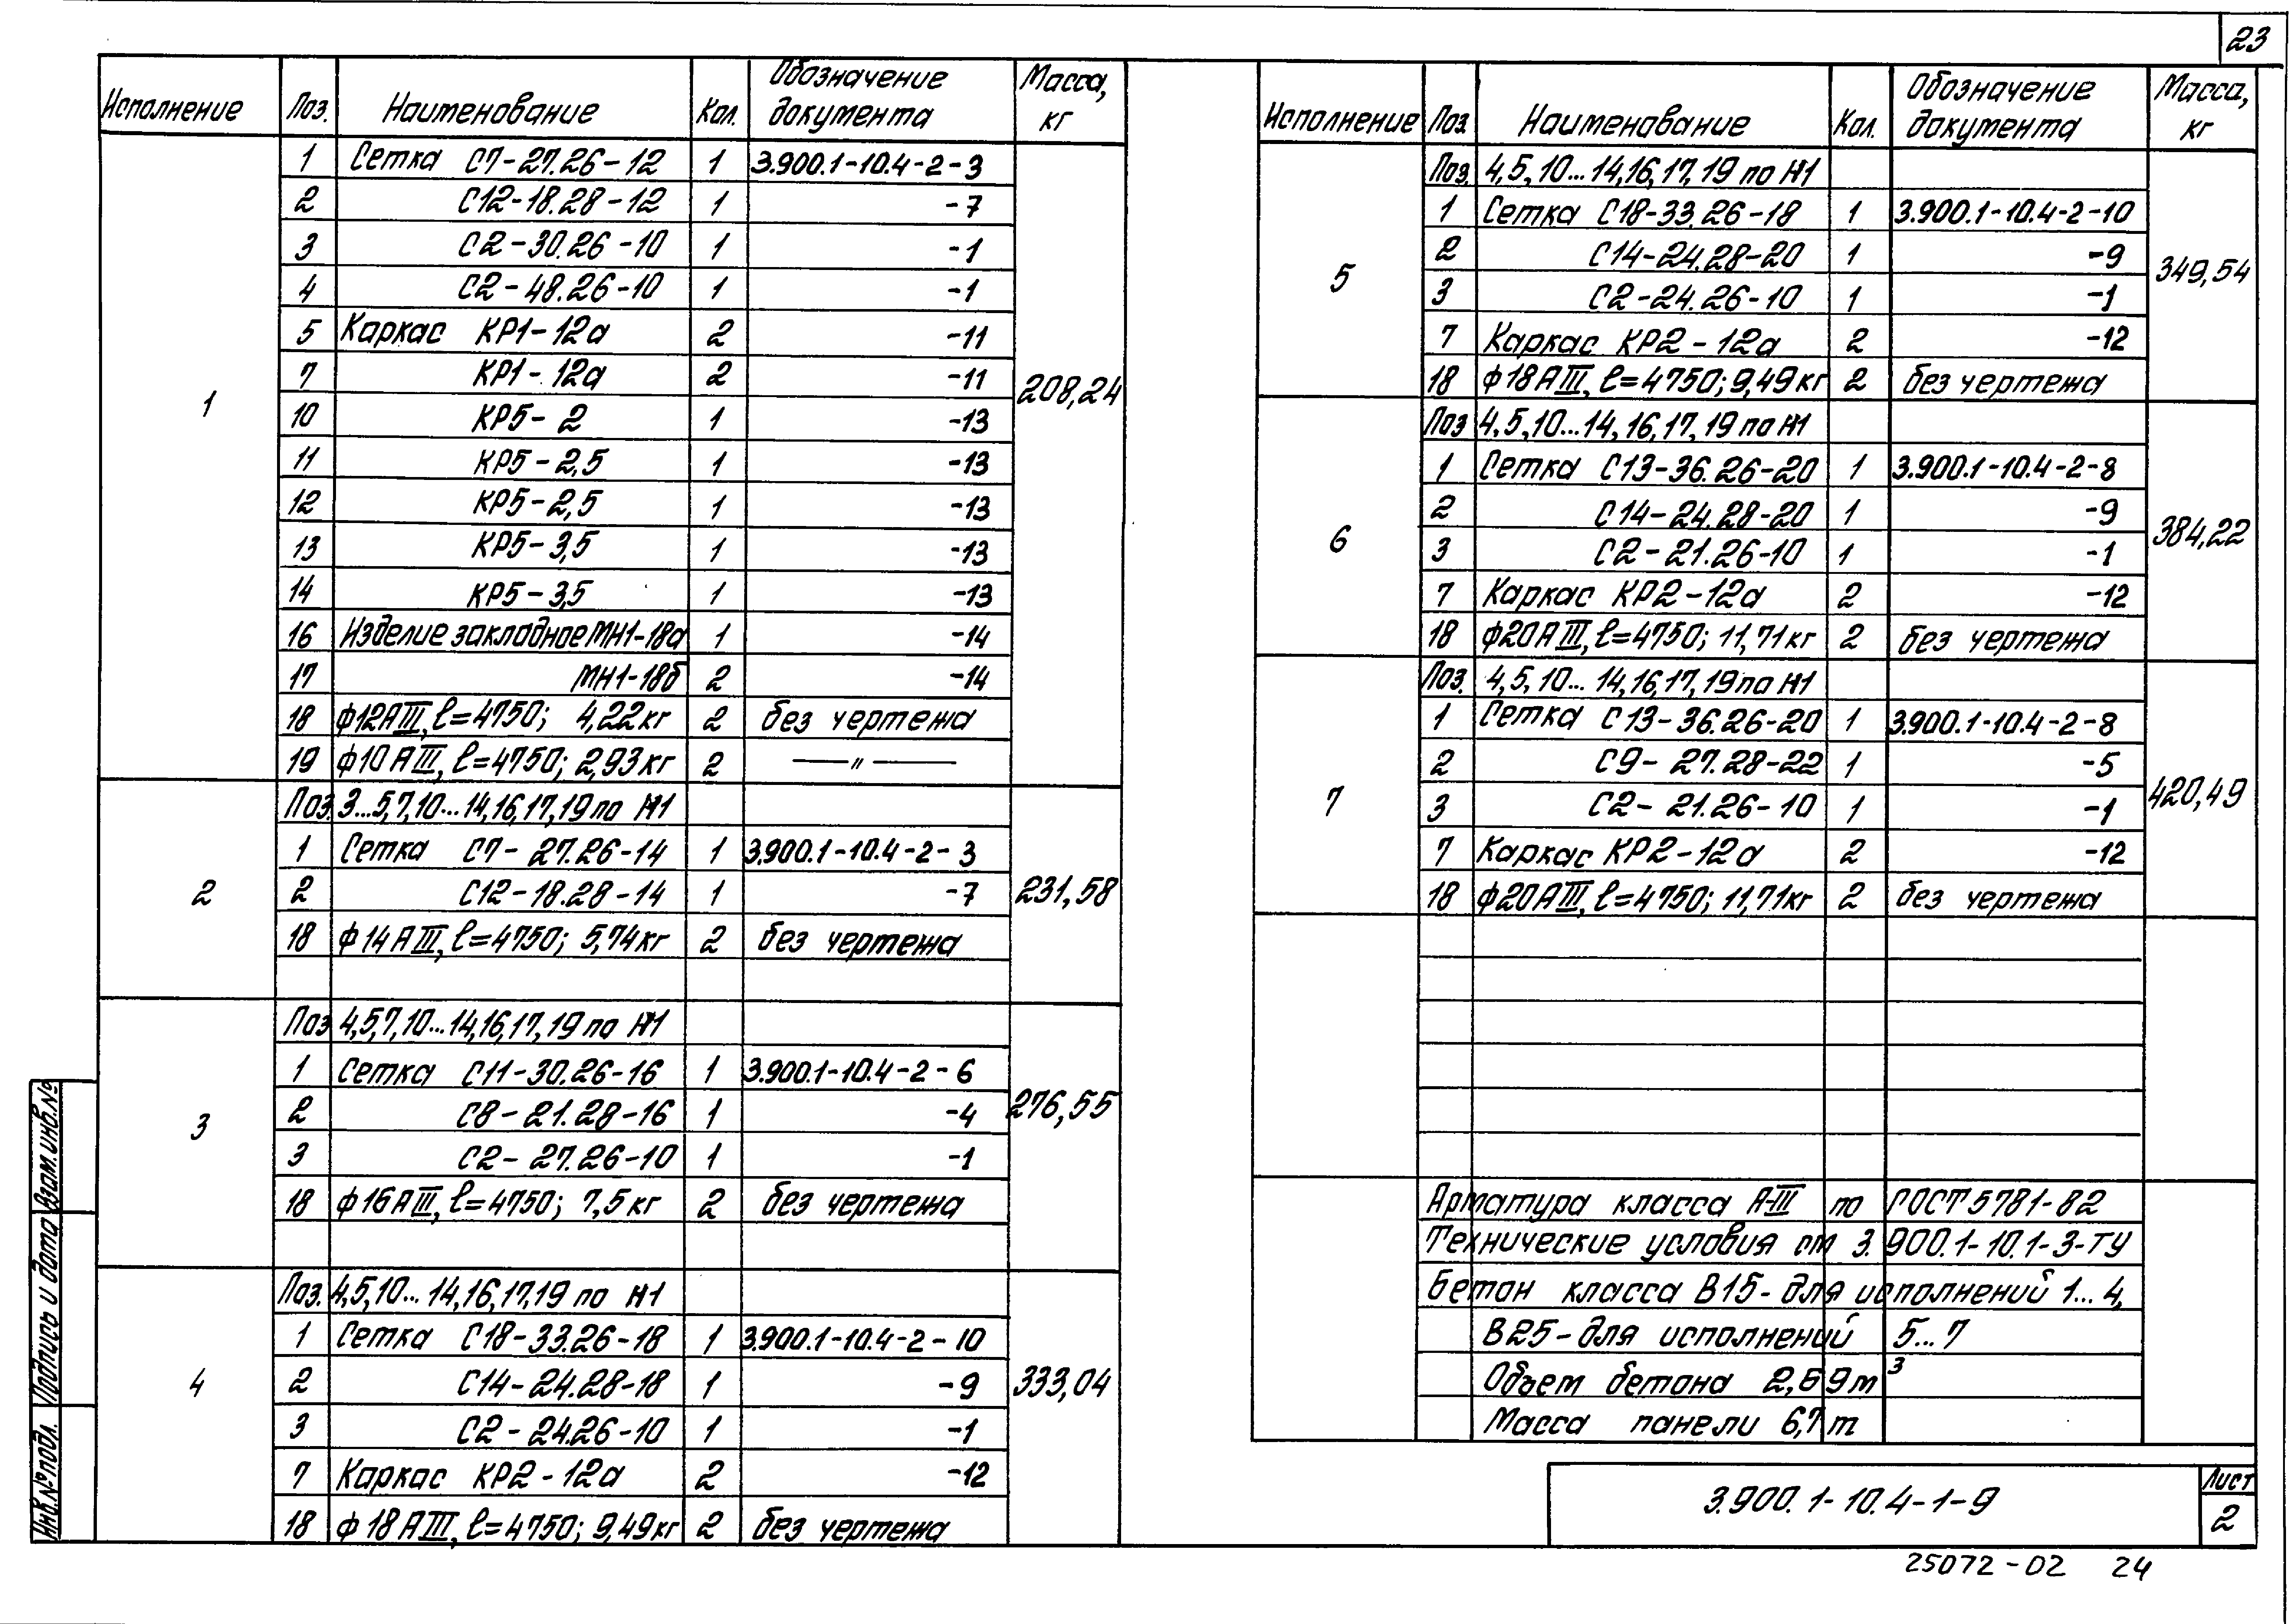 23
Исполнение Поз. Наименование Кол. Обозначение документа Масса, кг
1 208,24
1 Сетка С7-27.26-12 1 3.900.1-10.4-2-3
2 С12-18.28-12 1 -7
3 С2-30.26-10 1 -1
4 С2-48.26-10 1 -1
5 Каркас КР1-12а 2 -11
7 КР1-12а 2 -11
10 КР5-2 1 -13
11 КР5-2,5 1 -13
12 КР5-2,5 1 -13
13 КР5-3,5 1 -13
14 КР5-3,5 1 -13
16 Изделие закладное МН1-18а 1 -14
17 МН1-18б 2 -14
18 ф12АIII, ℓ=4750; 4,22кг 2 без чертежа
19 ф10АIII, ℓ=4750; 2,93кг 2 —〃—
2 231,58
Поз. 3...5,7,10...14,16,17,19 по И1
1 Сетка С7-27.26-14 1 3.900.1-10.4-2-3
2 С12-18.28-14 1 -7
18 ф14АIII, ℓ=4750; 5,74кг 2 без чертежа
3 276,55
Поз 4,5,7,10...14,16,17,19 по И1
1 Сетка С11-30.26-16 1 3.900.1-10.4-2-6
2 С8-21.28-16 1 -4
3 С2-27.26-10 1 -1
18 ф16АIII, ℓ=4750; 7,5кг 2 без чертежа
4 333,04
Поз. 4,5,10...14,16,17,19 по И1
1 Сетка С18-33.26-18 1 3.900.1-10.4-2-10
2 С14-24.28-18 1 -9
3 С2-24.26-10 1 -1
7 Каркас КР2-12а 2 -12
18 ф18АIII, ℓ=4750; 9,49кг 2 без чертежа
Исполнение Поз. Наименование Кол. Обозначение документа Масса, кг
5 349,54
Поз. 4,5,10...14,16,17,19 по И1
1 Сетка С18-33.26-18 1 3.900.1-10.4-2-10
2 С14-24.28-20 1 -9
3 С2-24.26-10 1 -1
7 Каркас КР2-12а 2 -12
18 ф18АIII, ℓ=4750; 9,49кг 2 без чертежа
6 384,22
Поз 4,5,10...14,16,17,19 по И1
1 Сетка С13-36.26-20 1 3.900.1-10.4-2-8
2 С14-24.28-20 1 -9
3 С2-21.26-10 1 -1
7 Каркас КР2-12а 2 -12
18 ф20АIII, ℓ=4750; 11,71кг 2 без чертежа
7 420,49
Поз. 4,5,10...14,16,17,19 по И1
1 Сетка С13-36.26-20 1 3.900.1-10.4-2-8
2 С9-27.28-22 1 -5
3 С2-21.26-10 1 -1
7 Каркас КР2-12а 2 -12
18 ф20АIII, ℓ=4750; 11,71кг 2 без чертежа
Арматура класса А-III по ГОСТ 5781-82
Технические условия см 3.900.1-10.1-3-ТУ
Бетон класса В15-для исполнений 1...4,
В25-для исполнений 5...7
Объем бетона 2,69м³
Масса панели 6,7т
3.900.1-10.4-1-9
Лист
2
25072-02 24
Инв.№подл. Подпись и дата Взам.инв.№